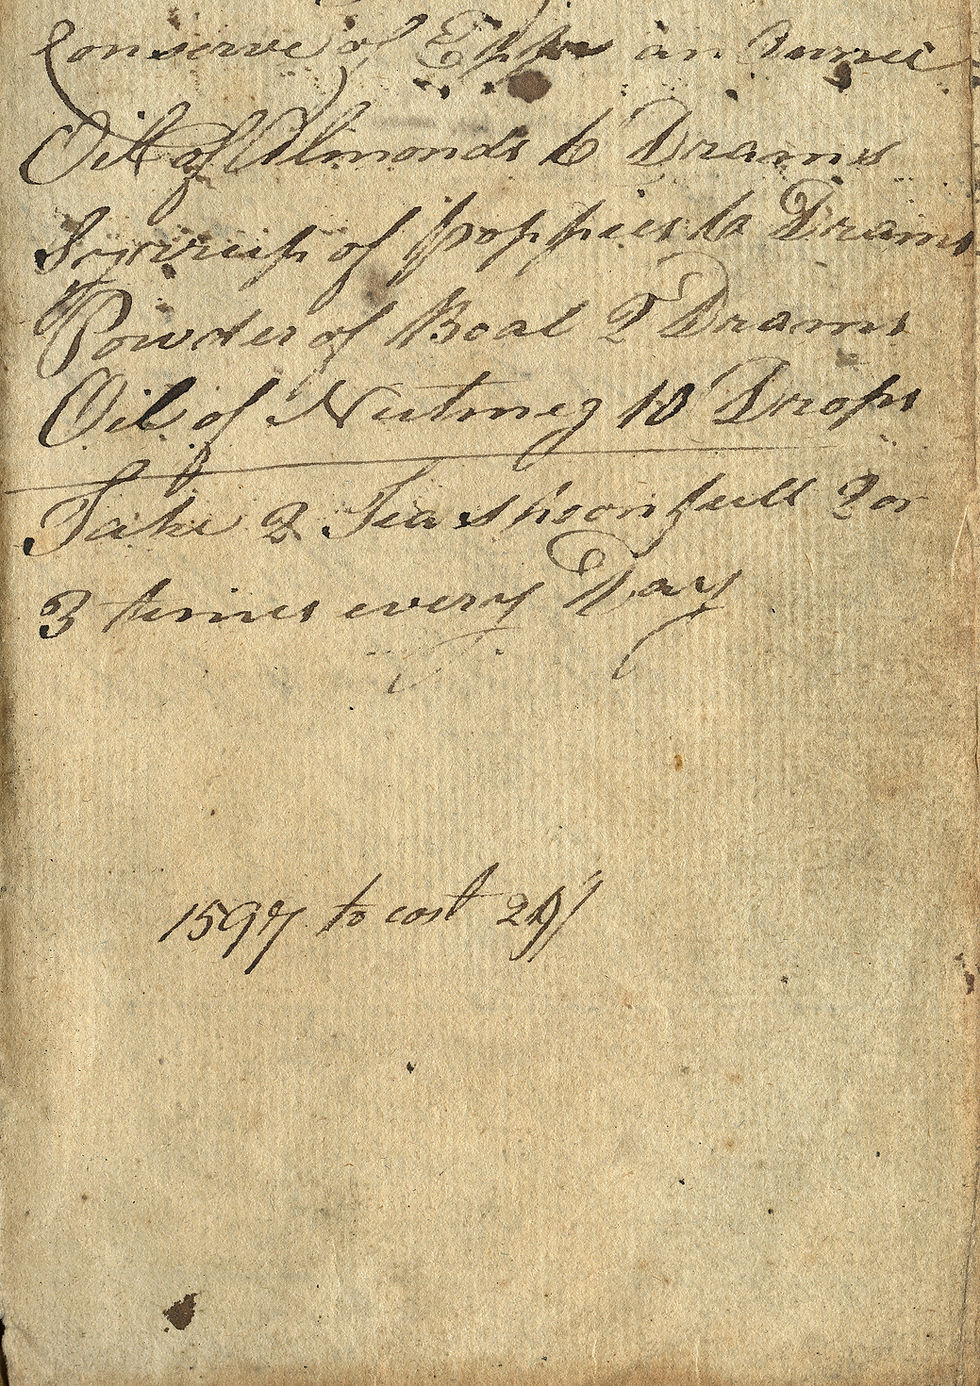 Conserve of an ounce
Oil of Almonds 6 Drams
Syrrup of poppies 6 Drams
Powder of Boal 2 Drams
Oil of Nutmeg 10 Drops
Take 2 Tea spoonfull 2 or
3 times every Day
1597 to cost